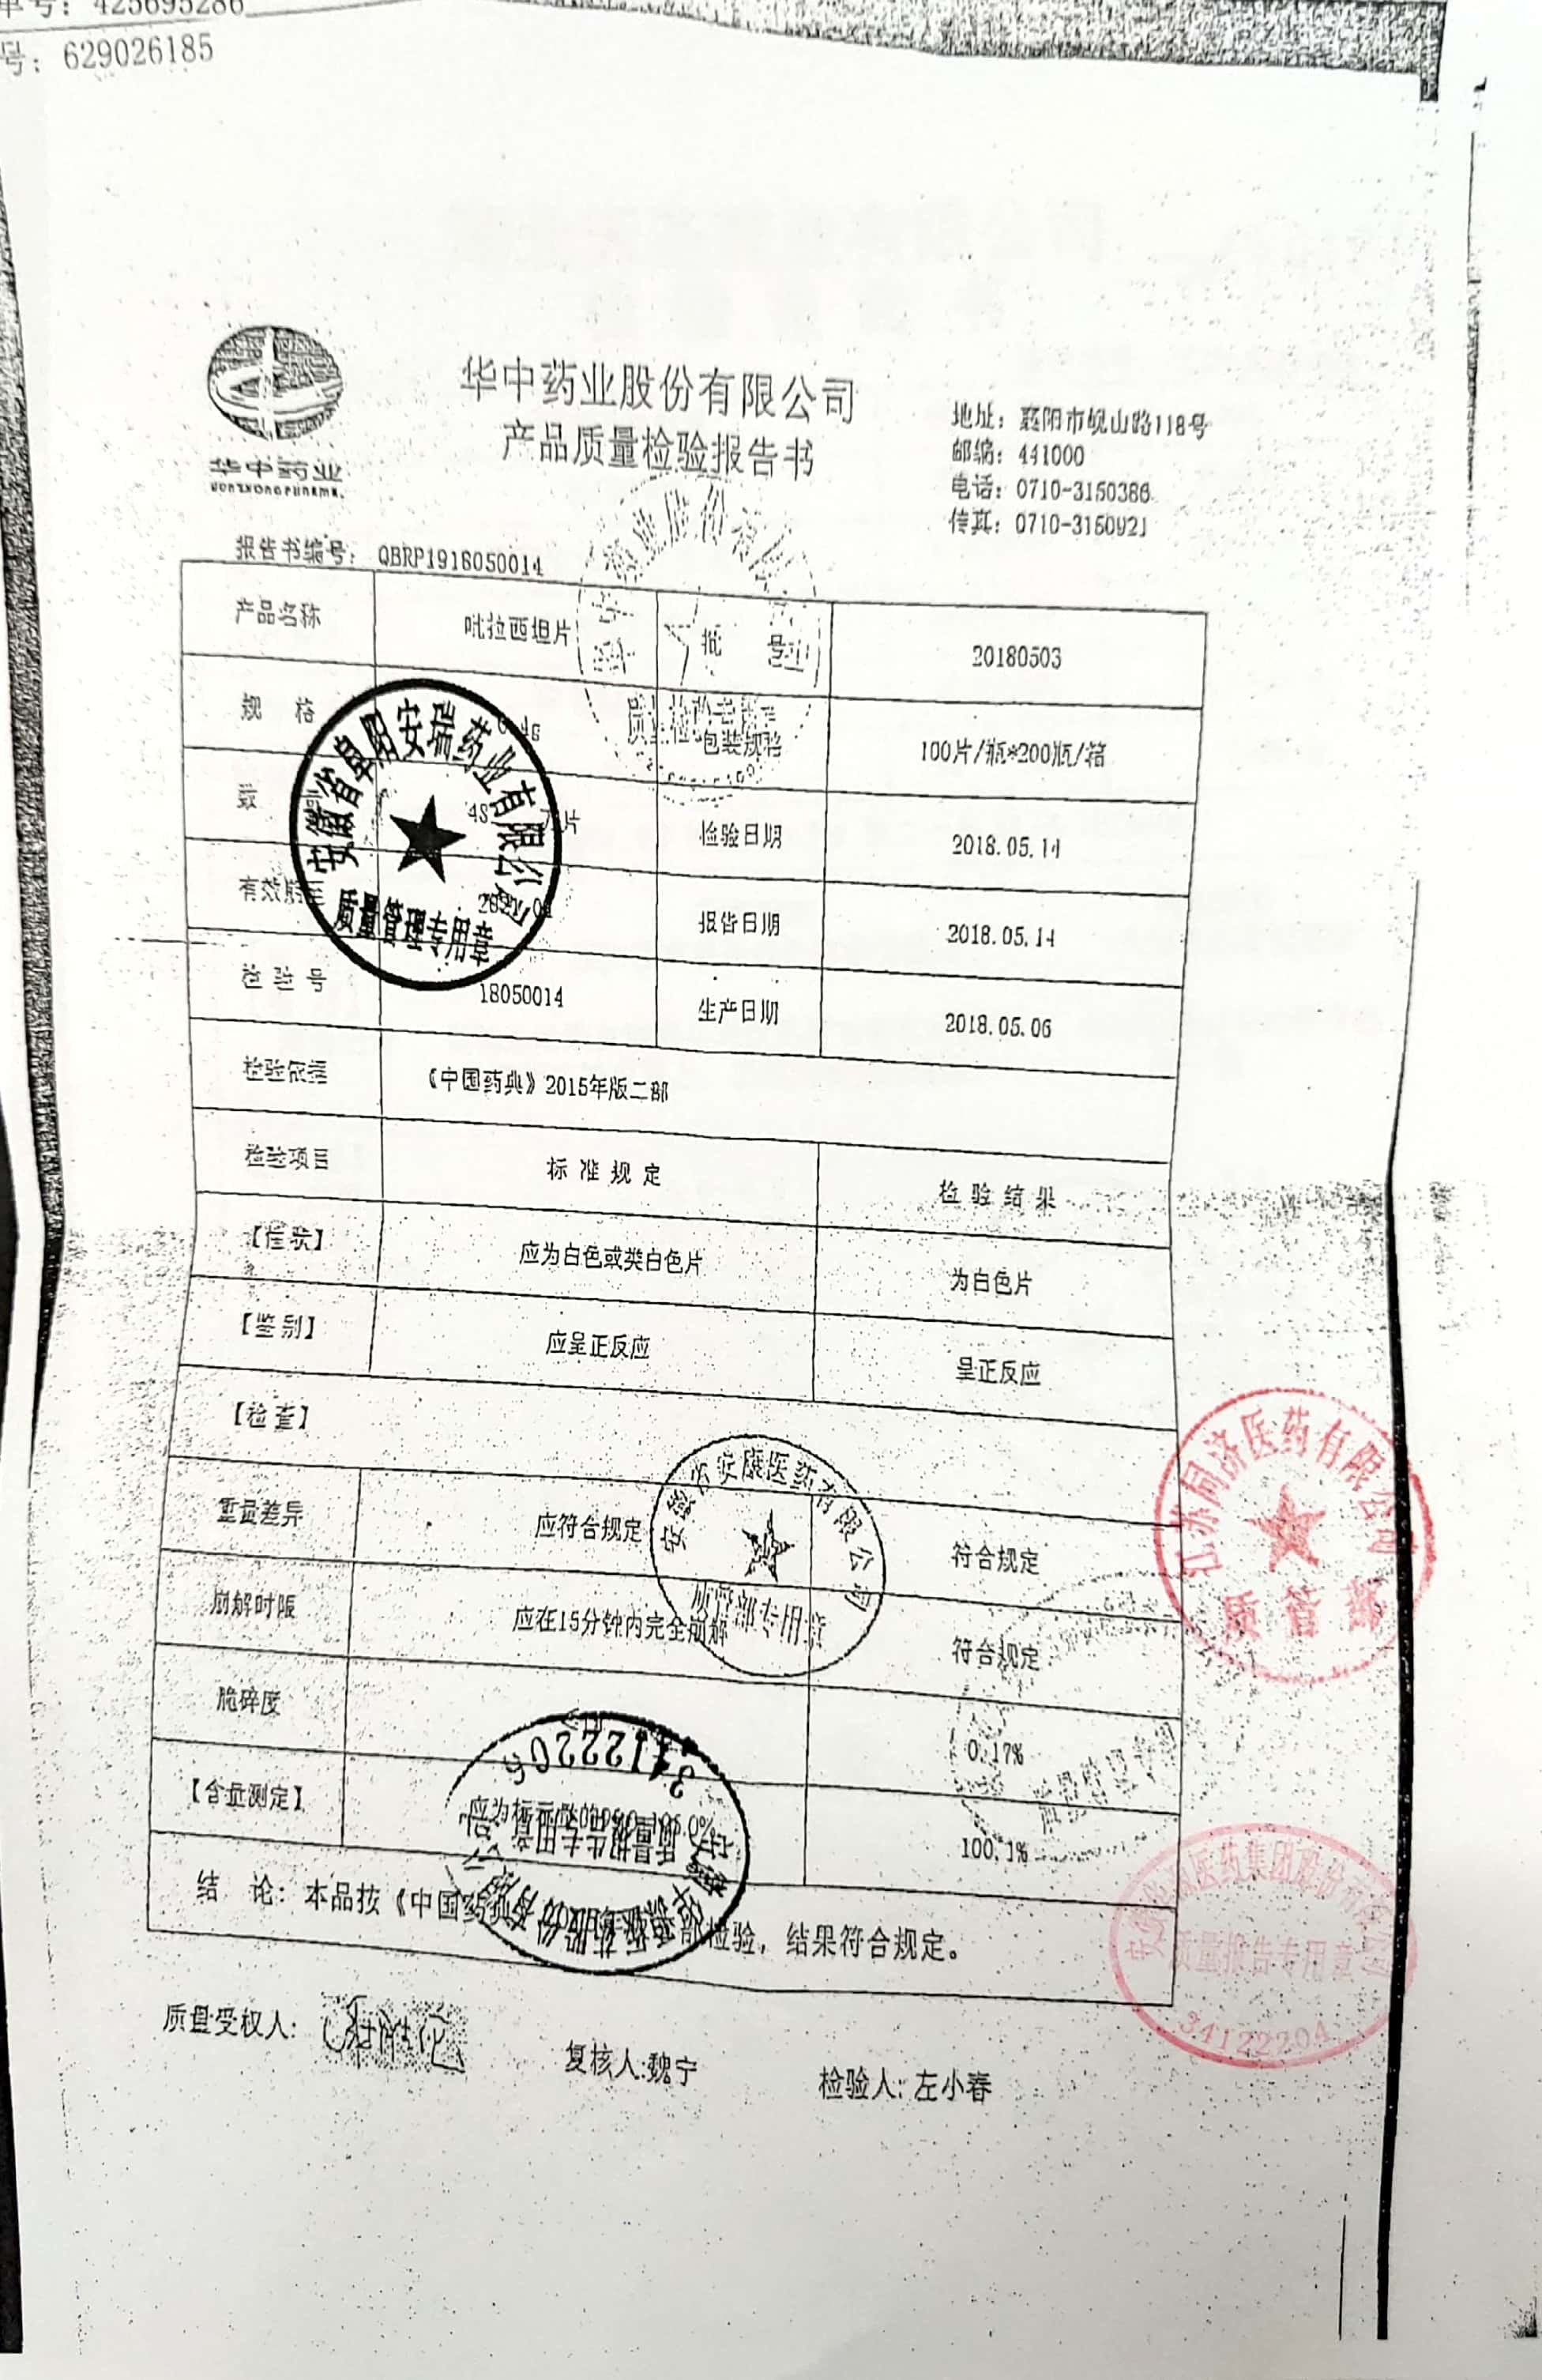 单号: 425695286
号: 629026185
华中药业
华中药业股份有限公司
产品质量检验报告书
地址: 襄阳市岘山路118号
邮编: 441000
电话: 0710-3150386
传真: 0710-3150921
报告书编号: QBRP1918050014
产品名称 吡拉西坦片 批 号 20180503
规 格 包装规格 100片/瓶*200瓶/箱
检验日期 2018.05.14
有效期至 报告日期 2018.05.14
检 验 号 18050014 生产日期 2018.05.06
检验依据 《中国药典》2015年版二部
检验项目 标 准 规 定 检 验 结 果
【性状】 应为白色或类白色片 为白色片
【鉴别】 应呈正反应 呈正反应
【检查】
重量差异 应符合规定 符合规定
崩解时限 应在15分钟内完全崩解 符合规定
脆碎度 0.17%
【含量测定】 100.1%
结 论: 本品按《中国药 检验, 结果符合规定。
质量受权人:
复核人:魏宁
检验人: 左小春
安徽省阜阳安瑞药业有限公司
质量管理专用章
质量检验专用章
安康医药有限公司
质管部专用章
江苏同济医药有限公司
质管部
质量报告专用章
医药集团股份有限公司
质量报告专用章
34122204